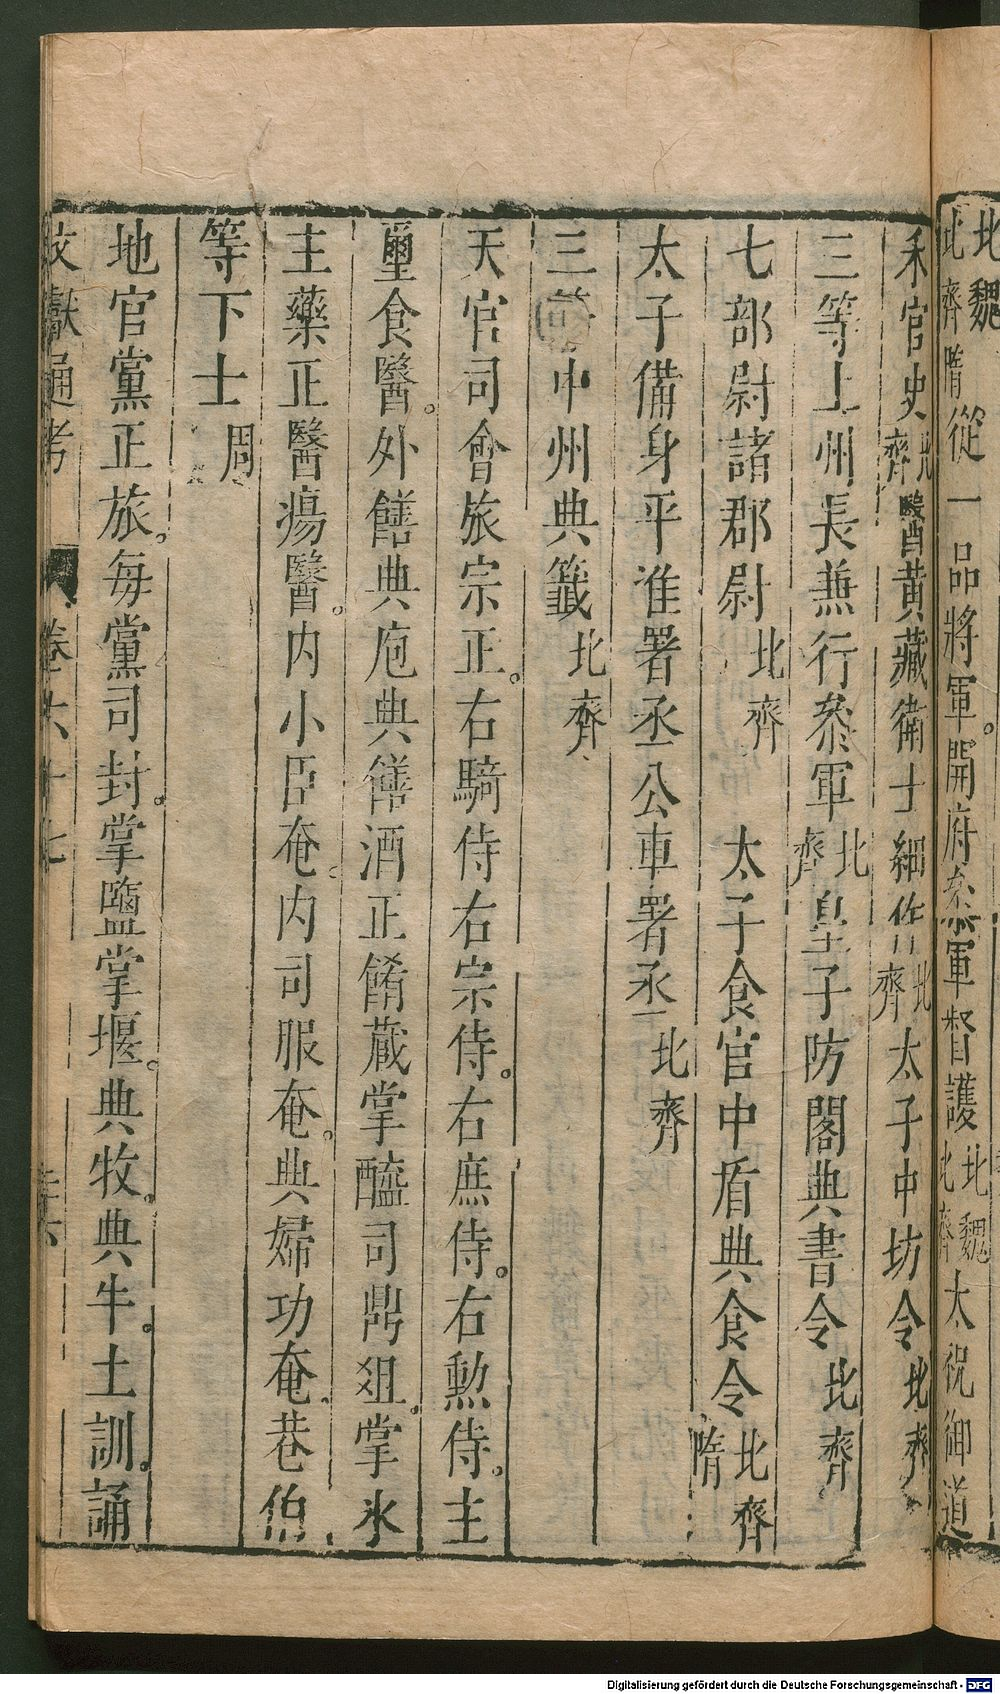 北魏
北齊隋從一品將軍。開府叅軍督護北魏北齊太祝御道
禾官史北齊醫酉黃藏衛士細作北齊太子中坊令北齊
三等上州長兼行叅軍北齊皇子防閣典書令北齊
七部尉諸郡尉北齊 太子食官中盾典食令北齊隋
太子備身平准署丞公車署丞北齊
三等中州典籤北齊
天官司會旅宗正。右騎侍右宗侍。右庶侍。右勲侍。主
璽食醫。外饍典庖典饎酒正餚蔵掌醢司鼎俎。掌氷
主藥正醫瘍醫。内小臣奄。内司服奄。典婦功奄。巷伯
等下士周
地官黨正旅。每黨司封。掌鹽掌堰。典牧。典牛。土訓。誦
文獻通考 卷六十七
Digitalisierung gefördert durch die Deutsche Forschungsgemeinschaft - DFG